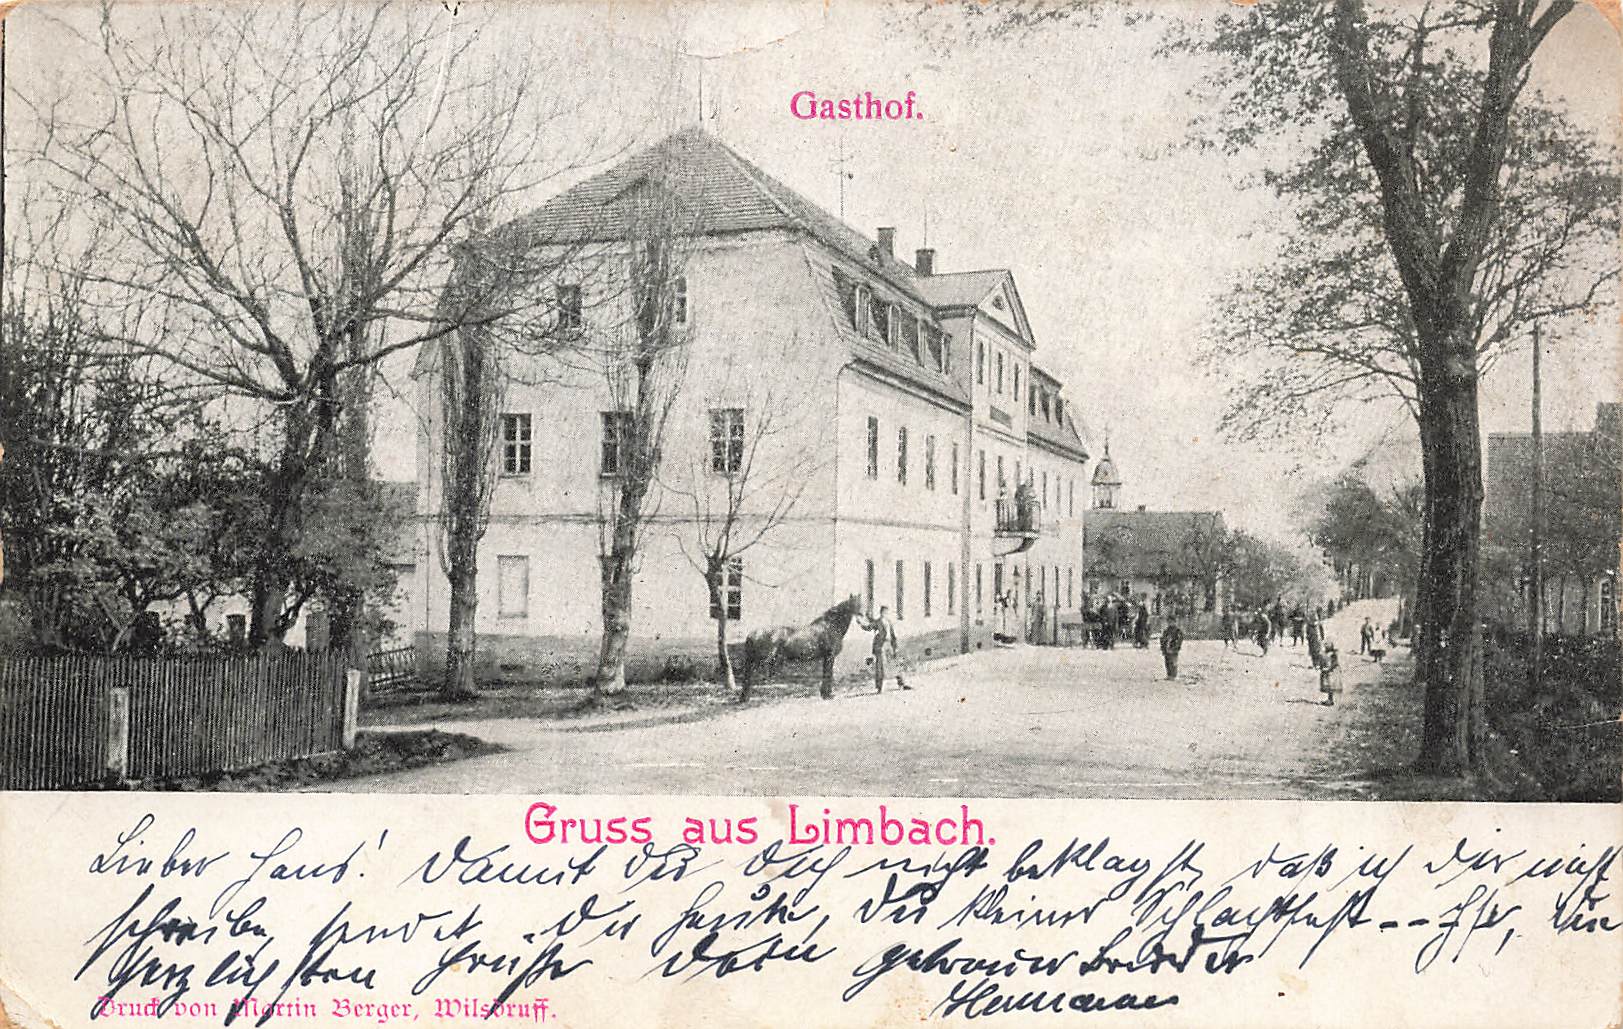 Gasthof.
Gruss aus Limbach.
Lieber Hans! Damit du dich nicht beklagst, daß ich dir nicht
schreibe, sendet dir heute, du kleiner Schlachtfest--
herzlichsten Grüße dein getreuer Bruder
Hermann
Druck von Martin Berger, Wilsdruff.